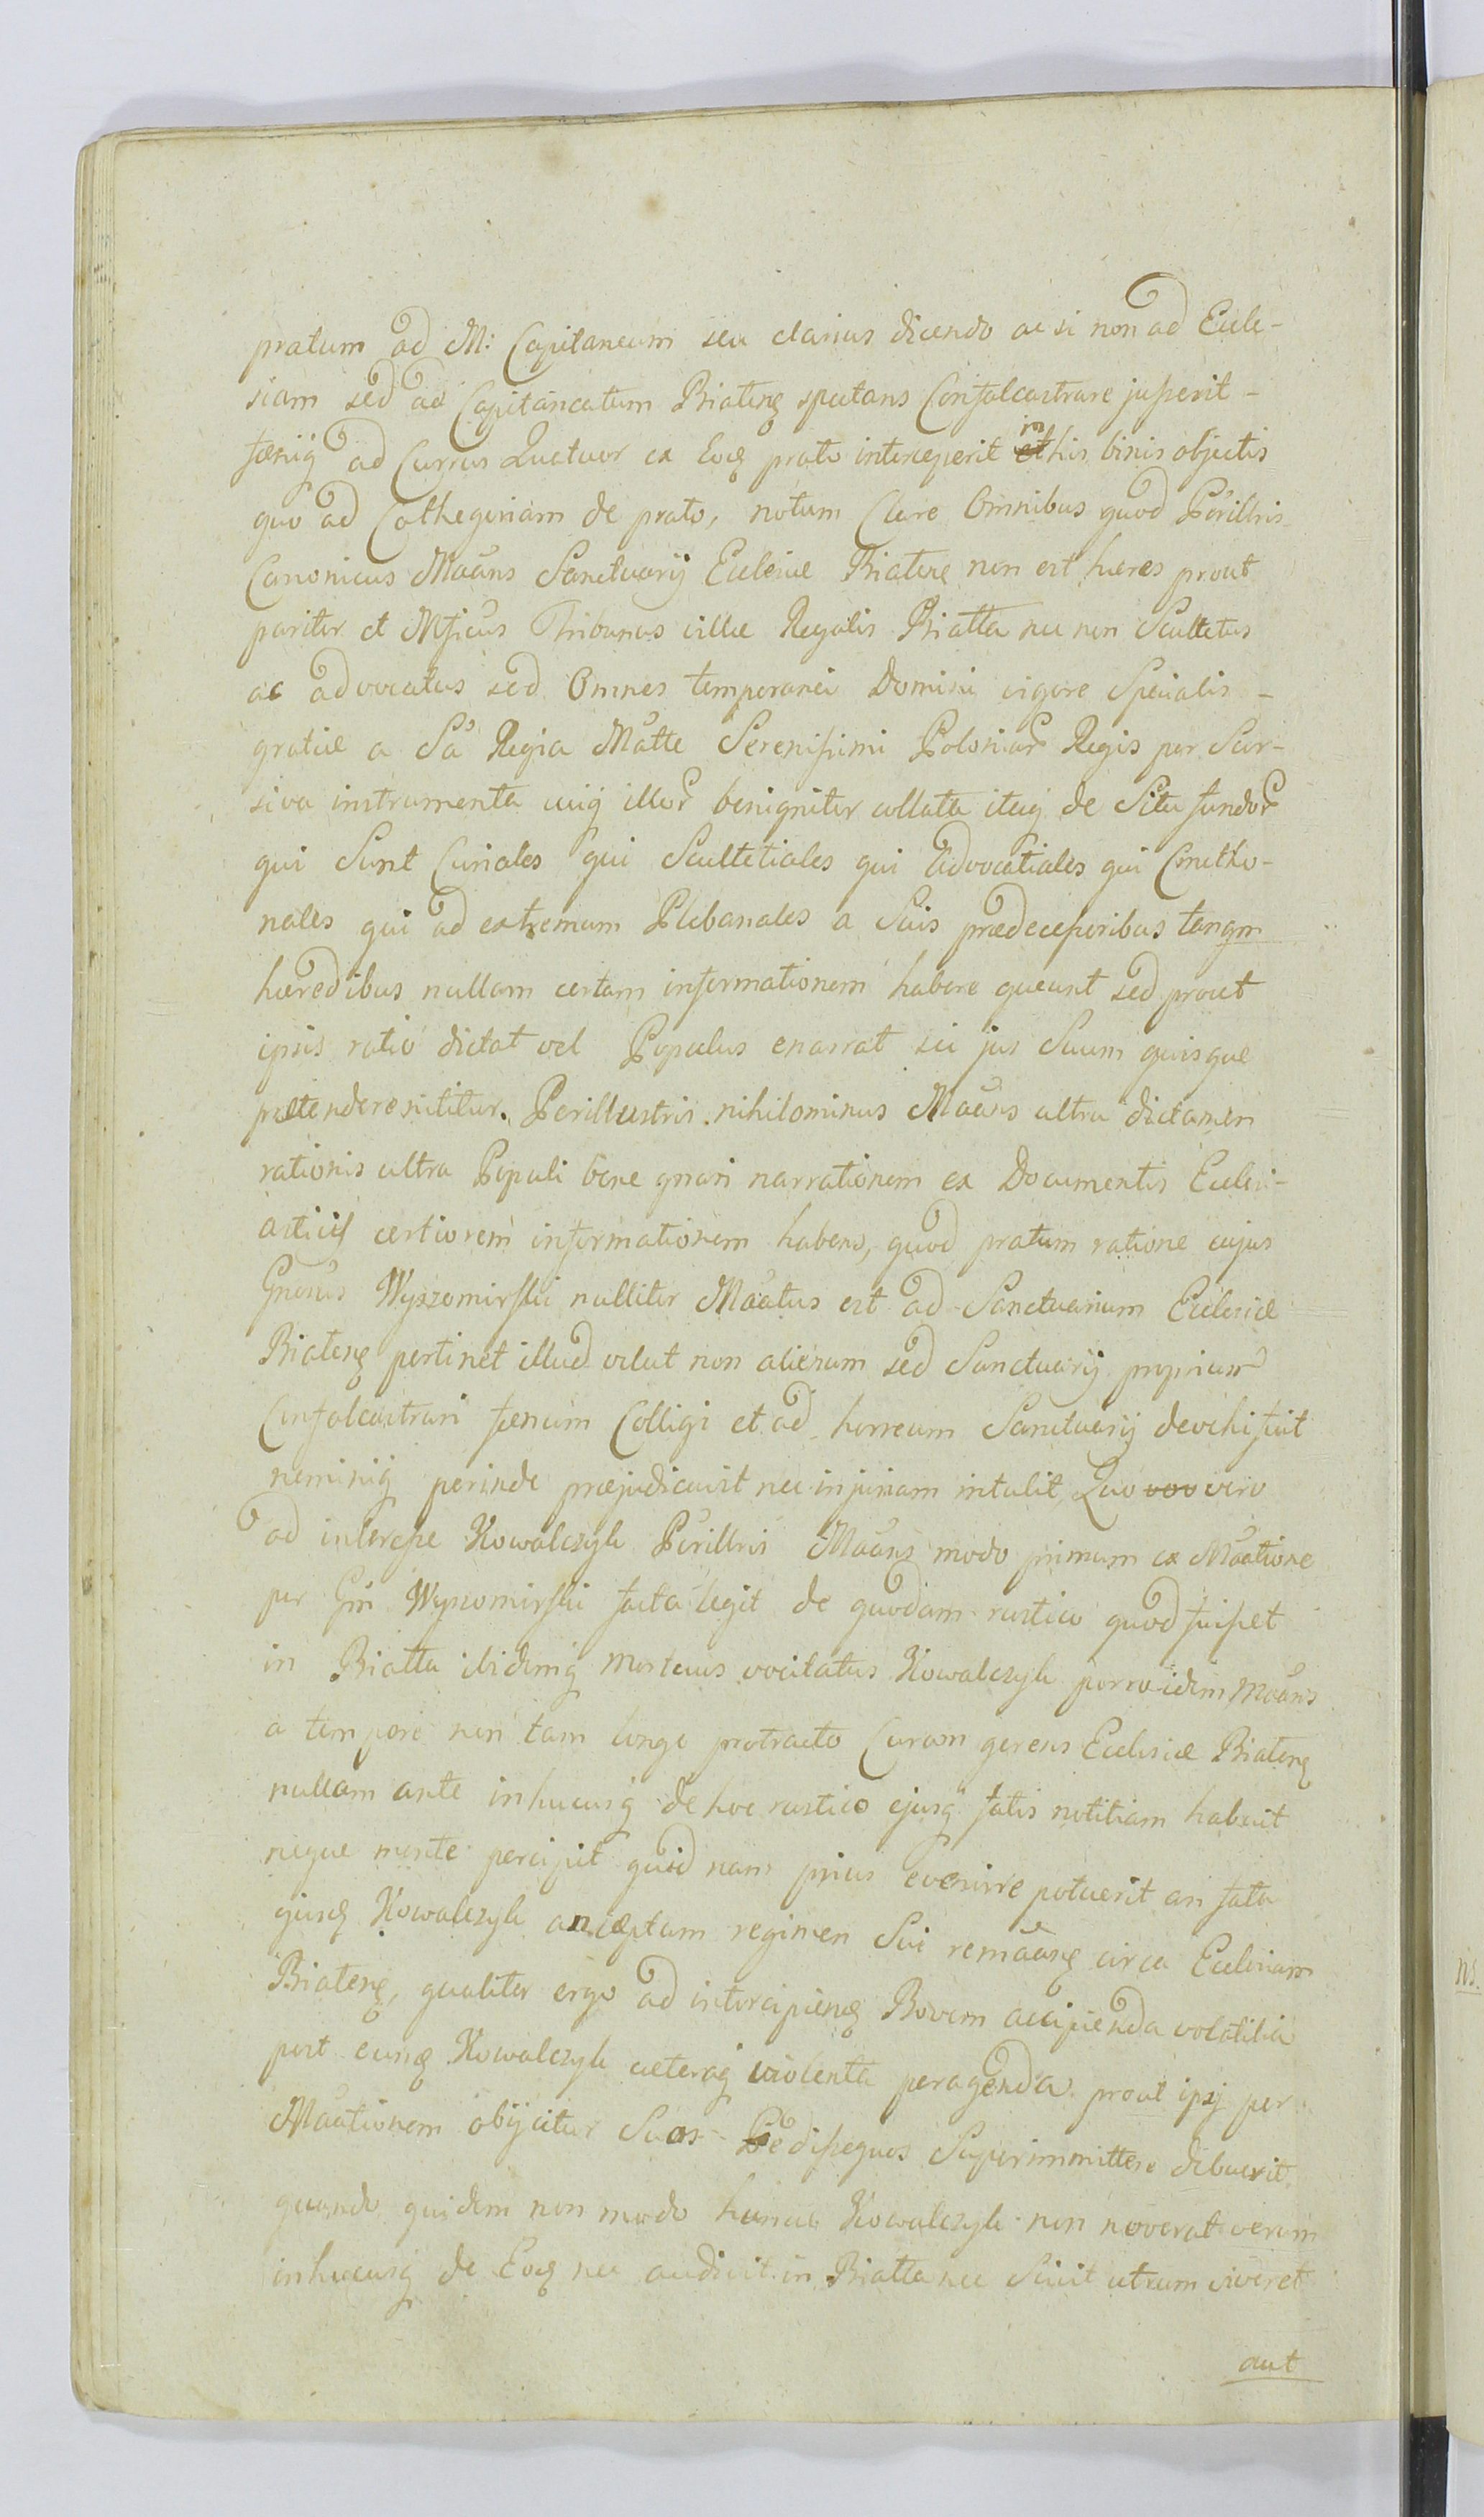 pratum ad M: Capitaneum seu clarius dicendo ac si non ad Eccle-
siam sed ad Capitaneatum Biatenꝫ spectans Confalcastrare jusserit -
fæniq ad Currus Quatuor ex Eoꝫ prato interceperit in his binis objectis
quo ad Cathegoriam de prato, notum Clare Omnibus quod Perillris
Canonicus Maans Sanctuarij Ecclesiæ Biatenẽ non est hæres prout
pariter et Mficus Tribunus villæ Regalis Biatta nec non Scultetus
ac advocatus sed Omnes temporanei Domini vigore Specialis -
gratiæ a Sa Regia Matte Serenissimi Poloniar Regis per Scr-
siva instrumenta cuiq illor benigniter collata itaq de Situ fundor
qui Sunt Curiales qui Scultetiales qui Advocatiales qui Cmetho-
nales qui ad extremum Plebanales a Suis prædecessoribus tanqm
hæredibus nullam certam informationem habere queunt sed prout
ipsis ratio dictat vel Populus enarrat sic jus Suum quisque
prætendere nititur. Perillustris nihilominus Maans ultra dictamen
rationis ultra Populi bene gnari narrationem ex Documentis Ecclesi-
asticis certiorem informationem habens, quod pratum ratione cujus
Gnosus Wyszomirski nulliter Maatus est ad Sanctuarium Ecclesiæ
Biatenꝫ pertinet illud velut non alienum sed Sanctuarij proprium
Confalcastrari fænum Colligi et ad horreum Sanctuarij devehi fecit
neminiq perinde præjudicavit nec injuriam intulit, Quo vero
ad intercepe Kowalczyk Perillris Maans modo primum ex Maatione
per Gm Wyszomirski facta legit de quodam rustico quod fuisset
in Biatta ibidemq mortuus vocitatus Kowalczyk porro idem Maans
a tempore non tam longe protracto Curam gerens Ecclesiæ Biatenꝫ
nullam ante inhucusq de hoc rustico ejusq fatis notitiam habuit
neque mente percipit quid nam prius evenire potuerit an fata
ejusꝫ Kowalczyk an cæptum regimen Sui remaanꝫ circa Ecclesiam
Biatenꝫ, qualiter ergo ad intercipienꝫ Bovem accipienda volatilia
post eunꝫ Kowalczyk cæteraq violenta peragenda prout ipsj per
Maationem obijcitur Suos Pedissequos Superimmittere debuerit
quando quidem non modo hunce Kowalczyk non noverat verum
inhucusq de Eoꝫ nec audivit in Biatta nec Scivit utrum viveret
aut